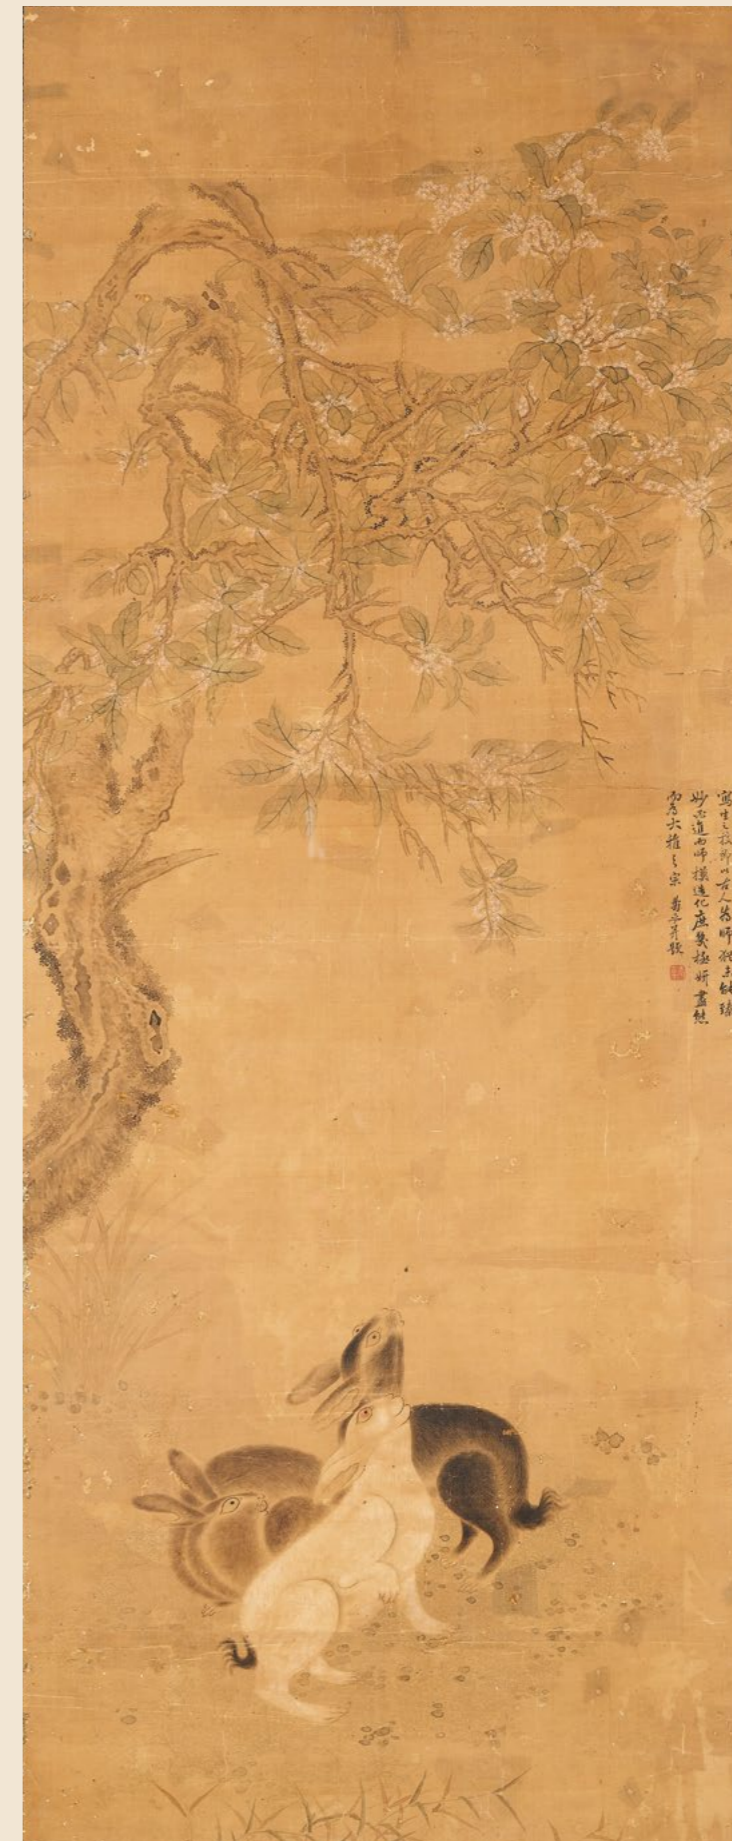 寫生之技鄉以古人爲師猶未能臻
妙必進而師模造化庶幾極妍盡態
而爲大雅之宗